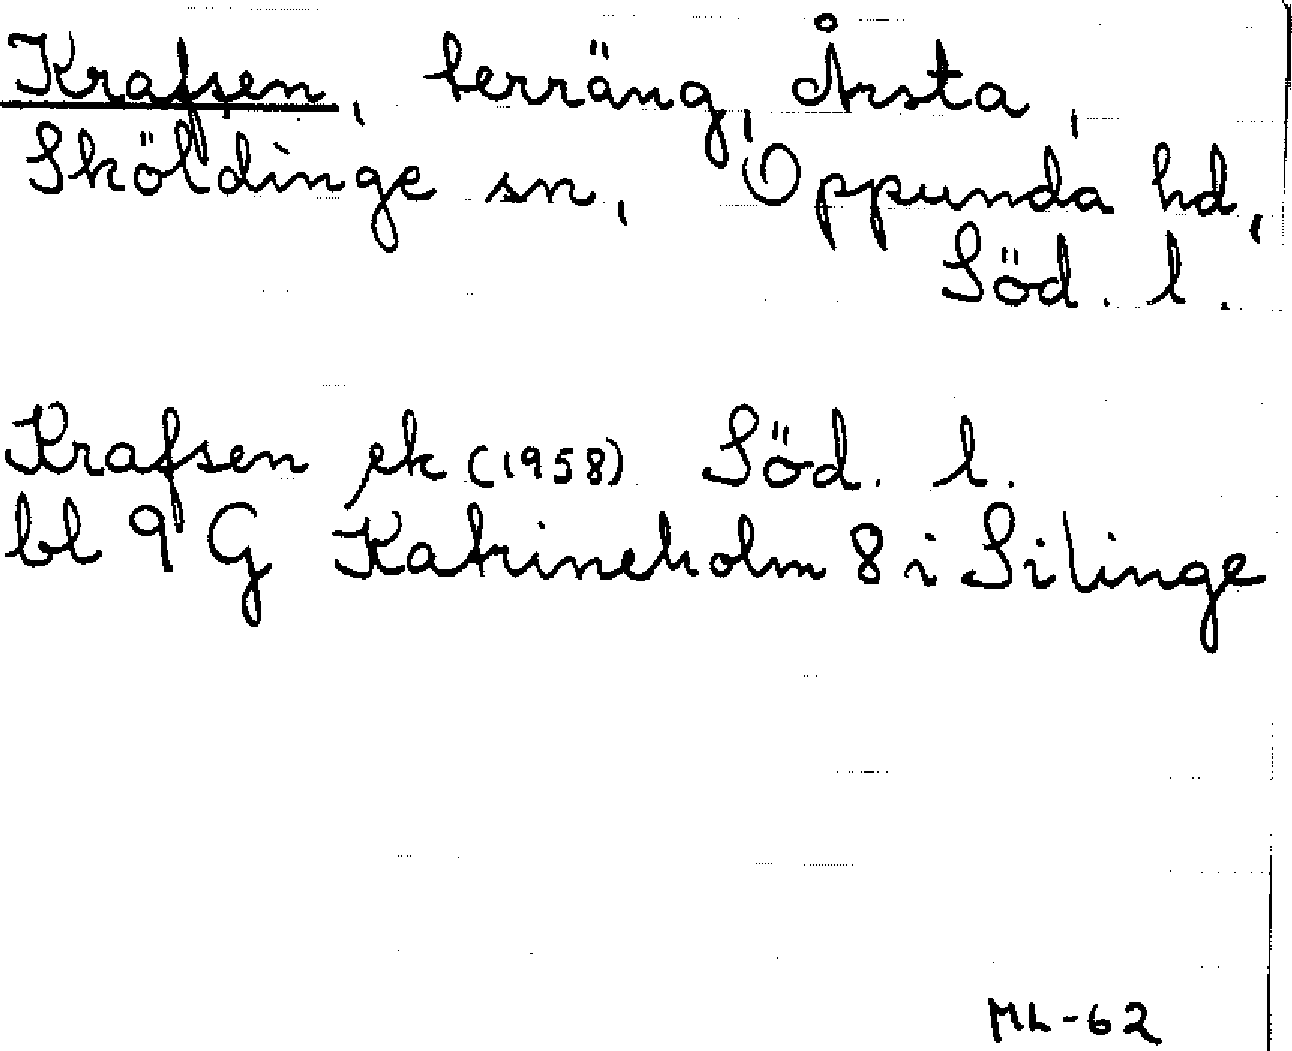 Krafsen, terräng, Årsta,
Sköldinge sn, Oppunda hd,
Söd. l.
Krafsen ek (1958) Söd. l.
bl 9 G Katrineholm 8 i Silinge
ML-62